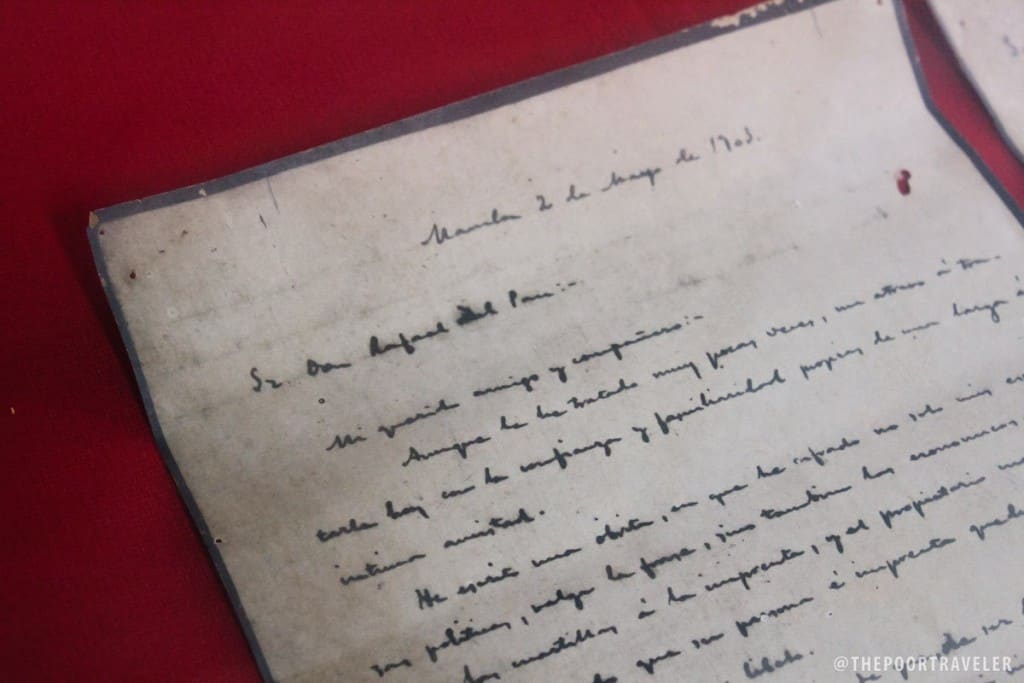 Manila 2 de Mayo de 1903.
Sr. Don Rafael Del Pan:-
Mi querido amigo y compañero:-
Aunque le he tratado muy pocas veces, me atrevo á tra-
tarle hoy con la confianza y familiaridad propias de una larga é
íntima amistad.
He escrito una obrita, en que he no solo mis
sas políticas, valga la frase, sino también las economicas
las cuartillas á la imprenta, y el propietario
que su persona é imprenta
de ser
@THEPOORTRAVELER